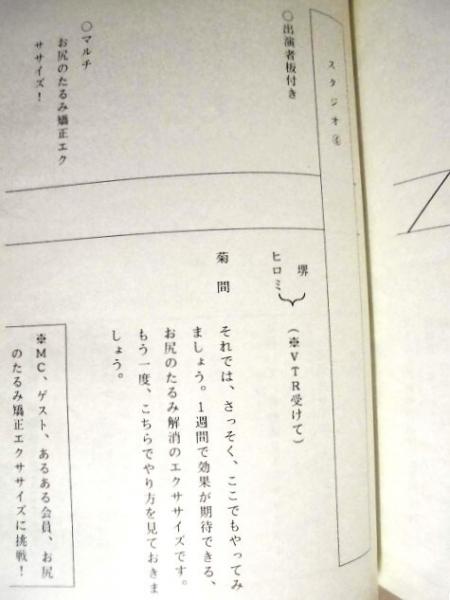 スタジオ④
○出演者板付き
○マルチ
お尻のたるみ矯正エク
ササイズ!
堺
ヒロミ
(※VTR受けて)
菊間
それでは、さっそく、ここでもやってみ
ましょう。1週間で効果が期待できる、
お尻のたるみ解消のエクササイズです。
もう一度、こちらでやり方を見ておきま
しょう。
※MC、ゲスト、あるある会員、お尻
のたるみ矯正エクササイズに挑戦!